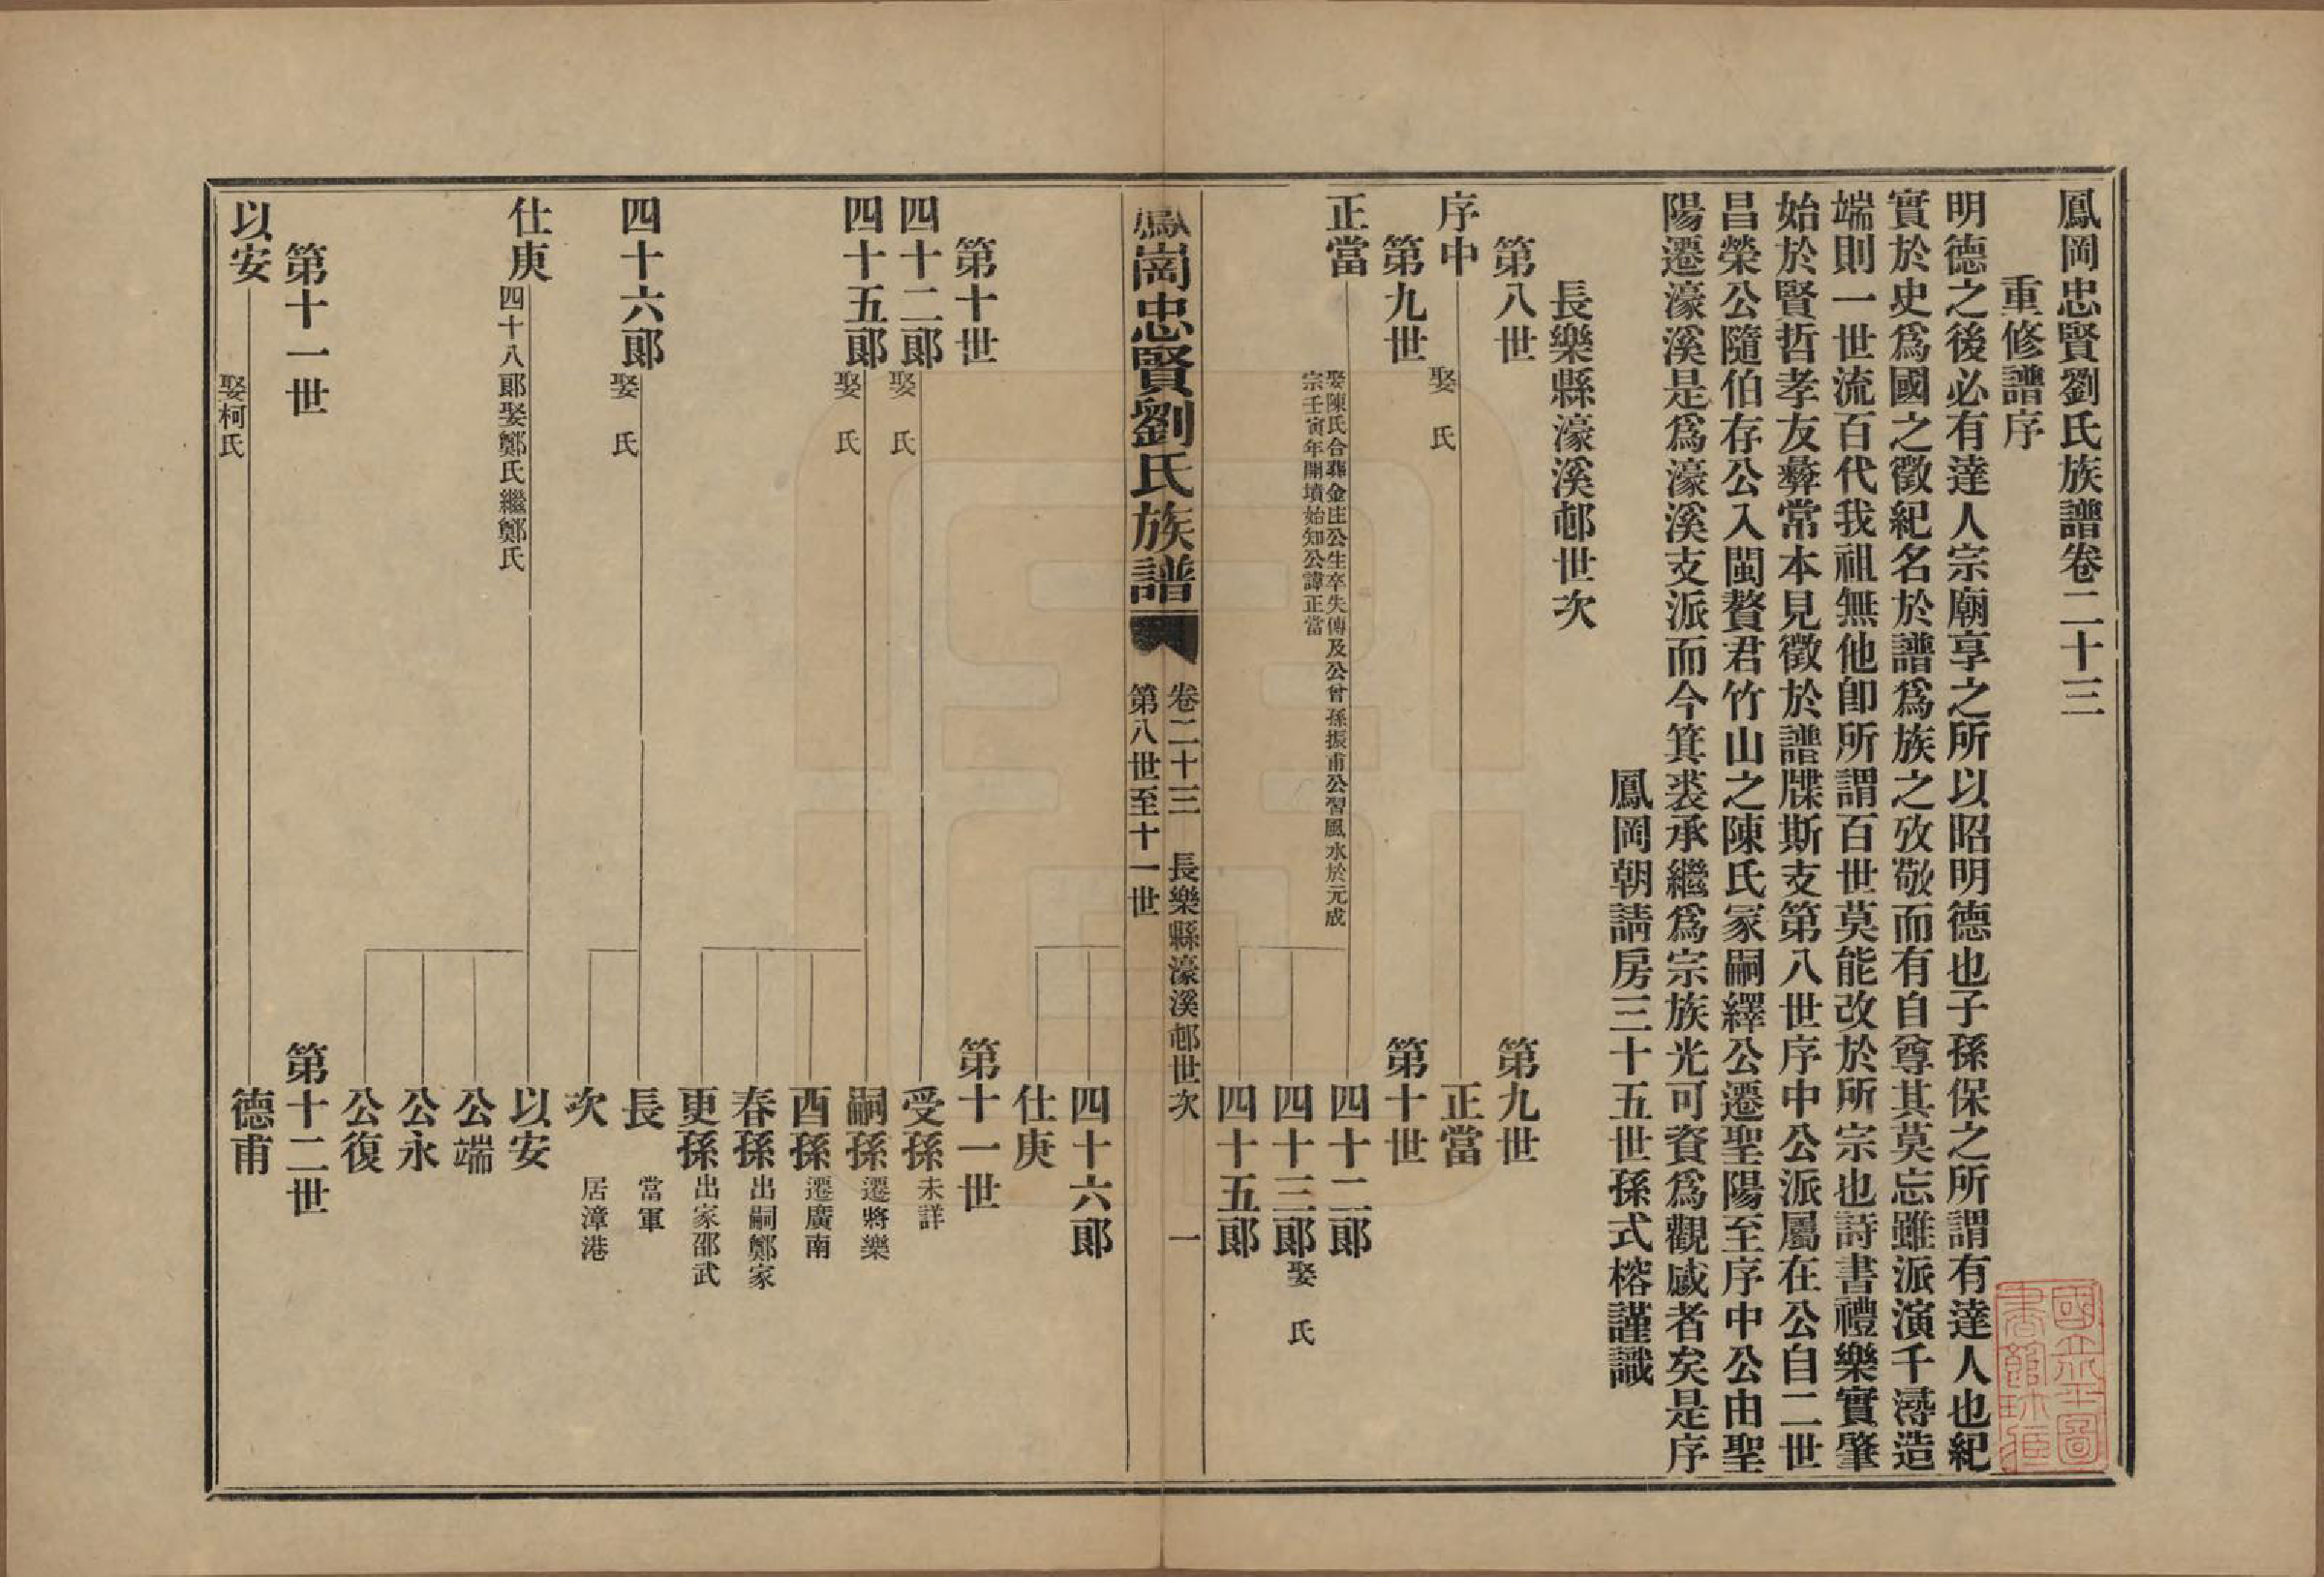 鳳岡忠賢劉氏族譜卷二十三
重修譜序
明德之後必有達人宗廟享之所以昭明德也子孫保之所謂有達人也紀
實於史爲國之徵紀名於譜爲族之攷敬而有自尊其莫忘雖派演千潯造
端則一世流百代我祖無他卽所謂百世莫能改於所宗也詩書禮樂實肇
始於賢哲孝友彝常本見徵於譜牒斯支第八世序中公派屬在公自二世
昌榮公隨伯存公入閩贅君竹山之陳氏家嗣繹公遷聖陽至序中公由聖
陽遷濠溪是爲濠溪支派而今箕裘承繼爲宗族光可資爲觀感者矣是序
鳳岡朝請房三十五世孫式榕謹識
長樂縣濠溪邨世次
第八世
第九世
序中
娶 氏
正當
第九世
第十世
正當
娶陳氏合葬金庄公生卒失傳及公曾孫振甫公習風水於元成
宗壬寅年開墳始知公諱正當
四十二郎
四十三郎
娶 氏
四十五郎
鳳岡忠賢劉氏族譜
卷二十三 長樂縣濠溪邨世次 一
第八世至十一世
四十六郎
仕庚
第十世
第十一世
四十二郎
娶 氏
受孫
未詳
四十五郎
娶 氏
嗣孫
遷將樂
酉孫
遷廣南
春孫
出嗣鄭家
更孫
出家邵武
四十六郎
娶 氏
長
當軍
次
居漳港
仕庚
四十八郎娶鄭氏繼鄭氏
以安
公端
公永
公復
第十一世
第十二世
以安
娶柯氏
德甫
國立北平圖
書館珍藏